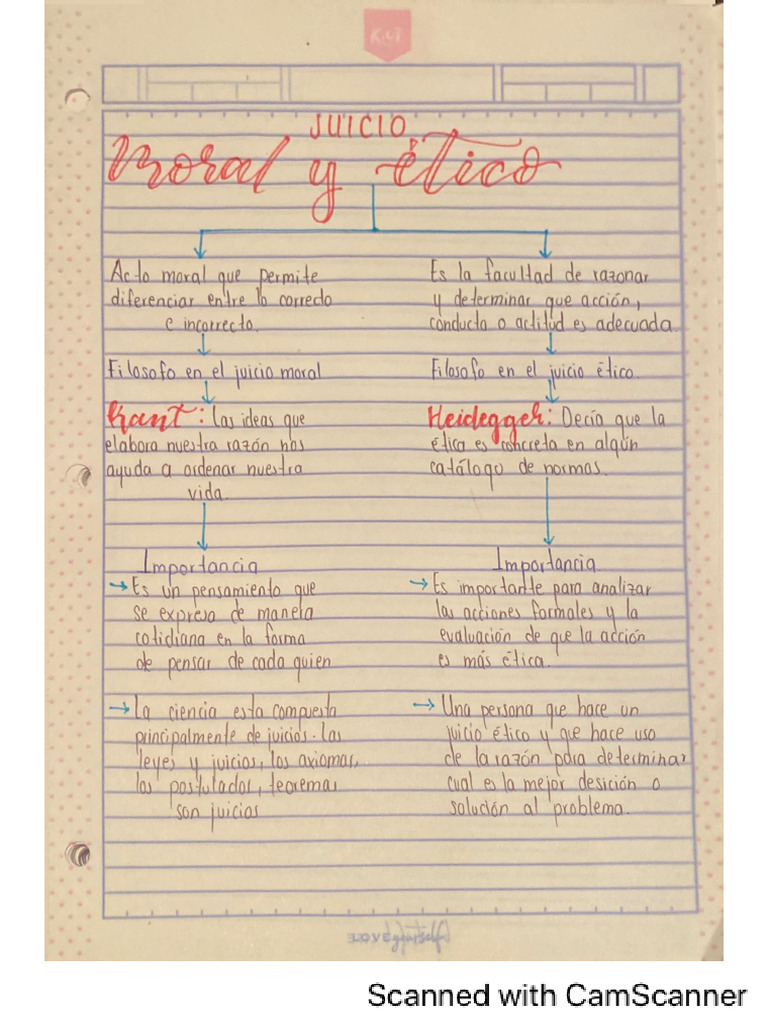 K.U.T
JUICIO
Moral y ético
Acto moral que permite
diferenciar entre lo correcto
e incorrecto.
Filosofo en el juicio moral
Kant: Las ideas que
elabora nuestra razón nos
ayuda a ordenar nuestra
vida.
Importancia
→ Es un pensamiento que
se expresa de manera
cotidiana en la forma
de pensar de cada quien
→ La ciencia esta compuesta
principalmente de juicios. Las
leyes y juicios, los axiomas,
los postulados, teoremas
son juicios
Es la facultad de razonar
y determinar que acción,
conducta o actitud es adecuada.
Filosofo en el juicio ético.
Heidegger: Decía que la
ética es concreta en algún
catálogo de normas.
Importancia
→ Es importante para analizar
las acciones formales y la
evaluación de que la acción
es más ética.
→ Una persona que hace un
juicio ético y que hace uso
de la razón para determinar
cual es la mejor desición o
solución al problema.
Scanned with CamScanner